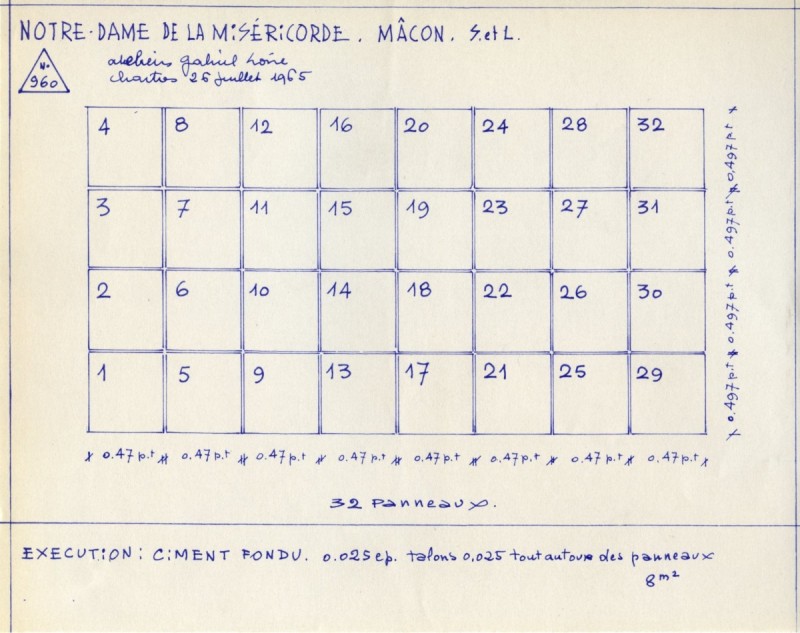 NOTRE-DAME DE LA MiSÉRiCORDE. MÂCON. S. et L.
N°
960
ateliers gabriel Loire
chartres 26 juillet 1965
4 8 12 16 20 24 28 32
3 7 11 15 19 23 27 31
2 6 10 14 18 22 26 30
1 5 9 13 17 21 25 29
0.497 p.t 0.497 p.t 0.497 p.t 0.497 p.t
0.47 p.t 0.47 p.t 0.47 p.t 0.47 p.t 0.47 p.t 0.47 p.t 0.47 p.t 0.47 p.t
32 Panneaux.
EXECUTION: CiMENT FONDU. 0.025 ep. talons 0,025 tout autour des panneaux
8 m²